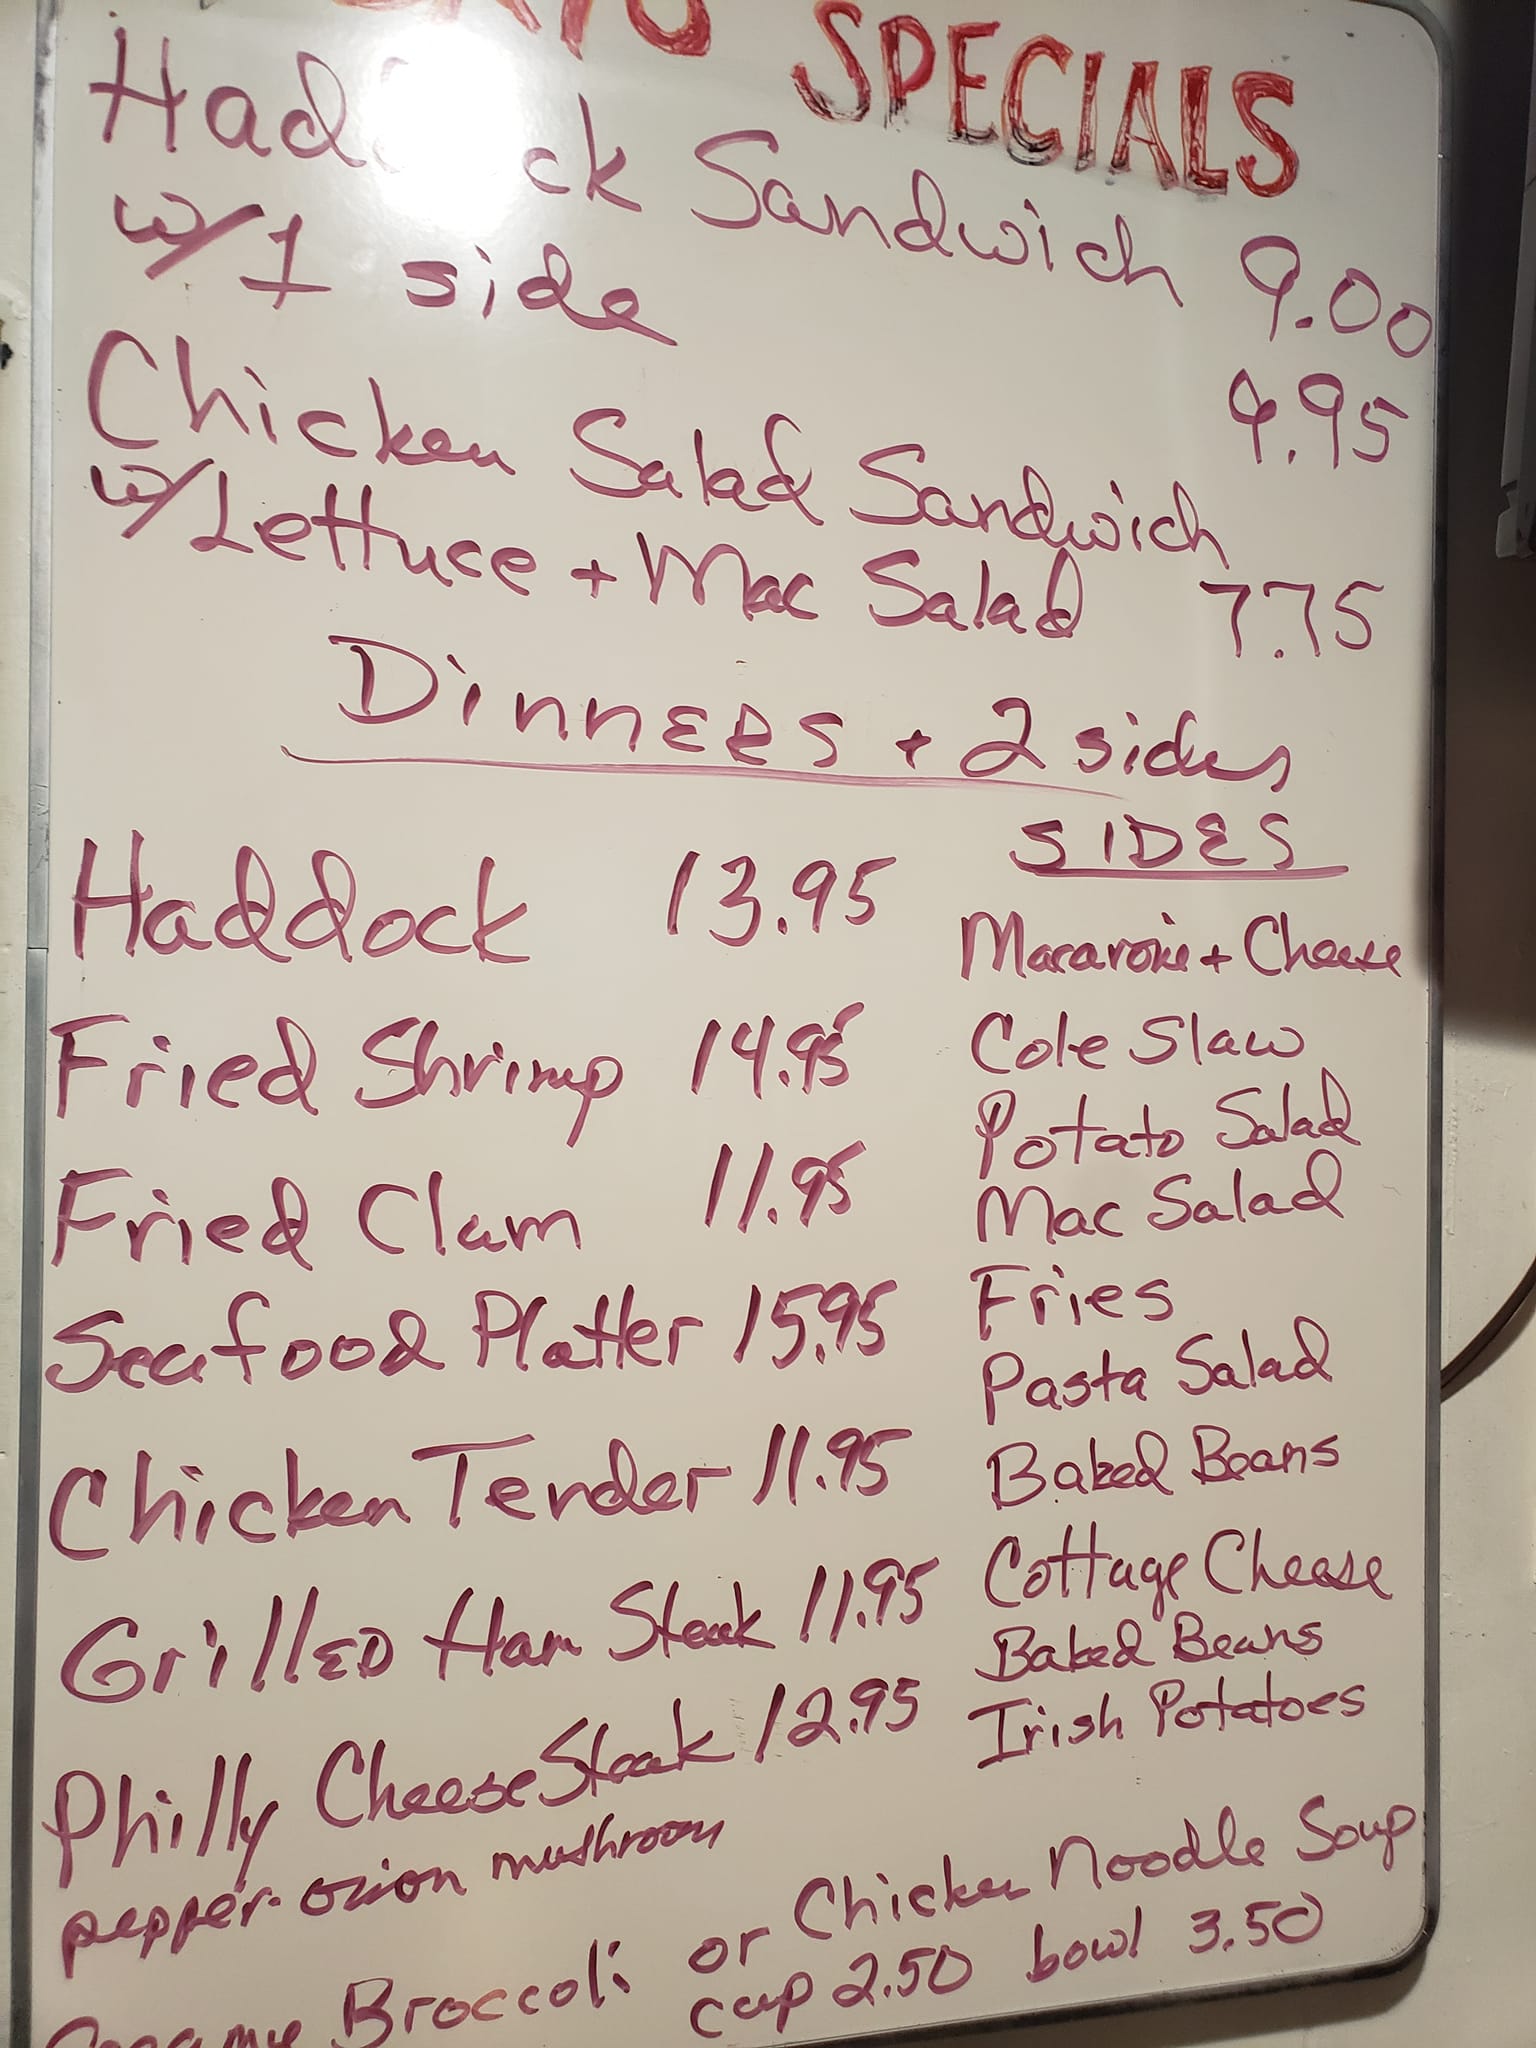 SPECIALS
Sandwich 9.00
w/1 side
9.95
Chicken Salad Sandwich
w/Lettuce + Mac Salad 7.75
DinnERS + 2 sides
SIDES
Haddock 13.95
Macaroni + Cheese
Fried Shrimp 14.95
Cole Slaw
Potato Salad
Fried Clam 11.95
Mac Salad
Seafood Platter 15.95
Fries
Pasta Salad
Chicken Tender 11.95
Baked Beans
Grilled Ham Steak 11.95
Cottage Cheese
Baked Beans
Philly CheeseSteak 12.95
Irish Potatoes
pepper-onion mushroom
Broccoli or Chicken Noodle Soup
cup 2.50 bowl 3.50